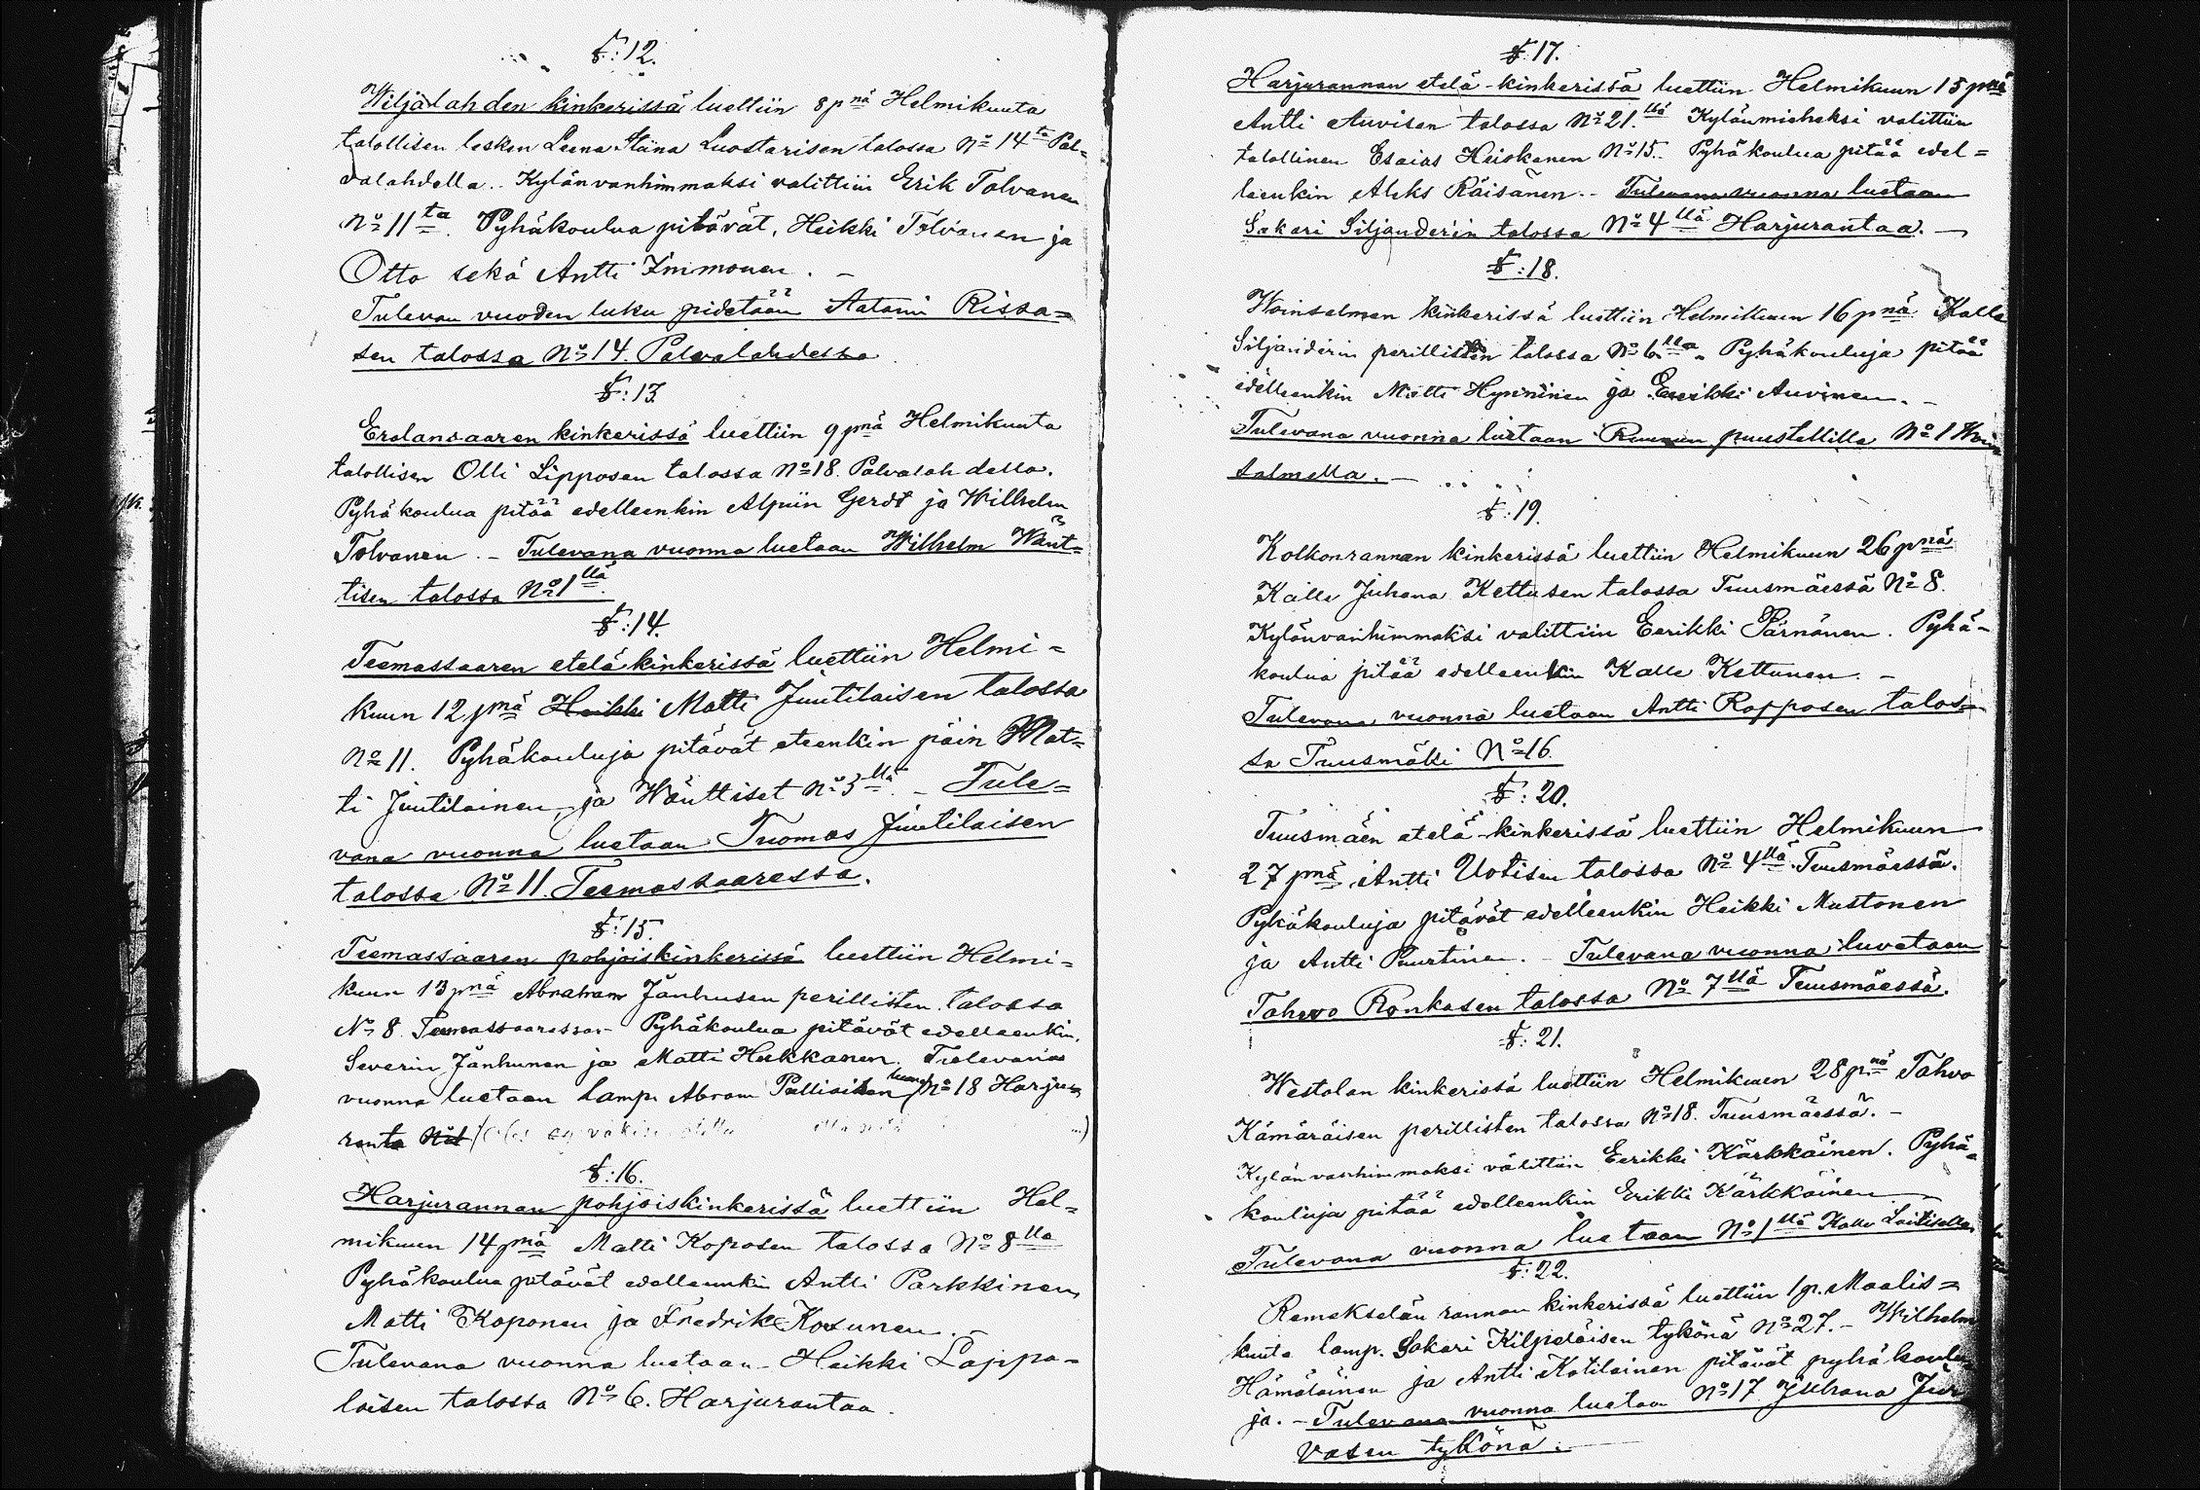 §:12.
Wiljalahden kinkerissä luettiin 8 pnä Helmikuuta
talollisen lesken Leena Stiina Luostarisen talossa No 14ta Pal=
valahdella. Kylänvanhimmaksi valittiin Erik Tolvanen
No 11ta. Pyhäkoulua pitävät, Heikki Tolvanen ja
Otto sekä Antti Immonen. –
Tulevan vuoden luku pidetään Aatami Rissa=
sen talossa No 14. Palvalahdessa.
§:13.
Erolansaaren kinkerissä luettiin 9 pnä Helmikuuta
talollisen Olli Lipposen talossa No 18 Palvalahdella.
Pyhäkoulua pitää edelleenkin Alpiin Gerdt ja Wilhelm
Tolvanen. – Tulevana vuonna luetaan Wilhelm Wänt=
tisen talossa No 1llä.
§:14.
Teemassaaren eteläkinkerissä luettiin Helmi=
kuun 12 pnä Heikki Matti Juutilaisen talossa
No 11. Pyhäkouluja pitävät eteenkin päin Mat=
ti Juutilainen, ja Wänttiset No 3llä. – Tule=
vana vuonna luetaan Tuomas Juutilaisen
talossa No 11. Teemassaaressa.
§:15.
Teemassaaren pohjoiskinkerissä luettiin Helmi=
kuun 13 pnä Abraham Jänhusen perillisten talossa
No 8 Teemassaaressa. – Pyhäkoulua pitävät edelleenkin,
Severin Jänhunen ja Matti Hukkanen. Tulevana
vuonna luetaan Lamp. Abram Pallisiken luona No 18 Harju=
ranta
§:16.
Harjurannan pohjoiskinkerissä luettiin Hel=
mikuun 14 pnä Matti Koposen talossa No 8lla
Pyhäkoulua pitävät edelleenkin Antti Parkkinen,
Matti Koponen ja Fredrik Kosunen. –
Tulevana vuonna luetaan Heikki Lappa=
laisen talossa No 6. Harjurantaa.
§:17.
Harjurannan etelä-kinkerissä luettiin Helmikuun 15 pnä
Antti Auvisen talossa No 21.llä Kylänmieheksi valittiin
talollinen Esaias Heiskanen No 15. Pyhäkoulua pitää edel=
leenkin Aleks Räisänen. – Tulevana vuonna luetaan
Sakari Siljanderin talossa No 4llä Harjurantaa. –
§:18.
Woinselmen kinkerissä luettiin Helmikuun 16 pnä Kalle
Siljanderin perillisten talossa No 6lla. Pyhäkouluja pitää
edelleenkin Matti Hynninen ja Eerikki Auvinen. –
Tulevana vuonna luetaan Ruunun puustellilla No 1 Woin
salmella. –
§:19.
Kolkonrannan kinkerissä luettiin Helmikuun 26 pnä
Kalle Juhana Kettusen talossa Tuusmäessä No 8.
Kylänvanhimmaksi valittiin Eerikki Pärnänen. Pyhä=
koulua pitää edelleenkin Kalle Kettunen. –
Tulevana vuonna luetaan Antti Ropposen talos=
sa Tuusmäki No 16.
§:20.
Tuusmäen etelä-kinkerissä luettiin Helmikuun
27 pnä Antti Uotisen talossa No 4llä Tuusmäessä.
Pyhäkouluja pitävät edelleenkin Heikki Mustonen
ja Antti Puurtinen. – Tulevana vuonna luvetaan
Tahvo Ronkasen talossa No 7llä Tuusmäessä.
§:21.
Westolan kinkerissä luettiin Helmikuun 28 p.nä Tahvo
Kämäräisen perillisten talossa No 18. Tuusmäessä. –
Kylänvanhimmaksi valittiin Eerikki Kärkkäinen. Pyhä=
kouluja pitää edelleenkin Erikki Kärkkäinen.
Tulevana vuonna luetaan No 1llä Kalle Laitisella
§:22.
Remekselän rannan kinkerissä luettiin 1 p. Maalis=
kuuta lamp. Sakari Kilpeläisen tykönä No 27. – Wilhelm
Hämäläinen ja Antti Kotilainen pitävät pyhäkoulu=
ja. – Tulevana vuonna luetaan No 17 Juhana Jur
vasen tykönä. –